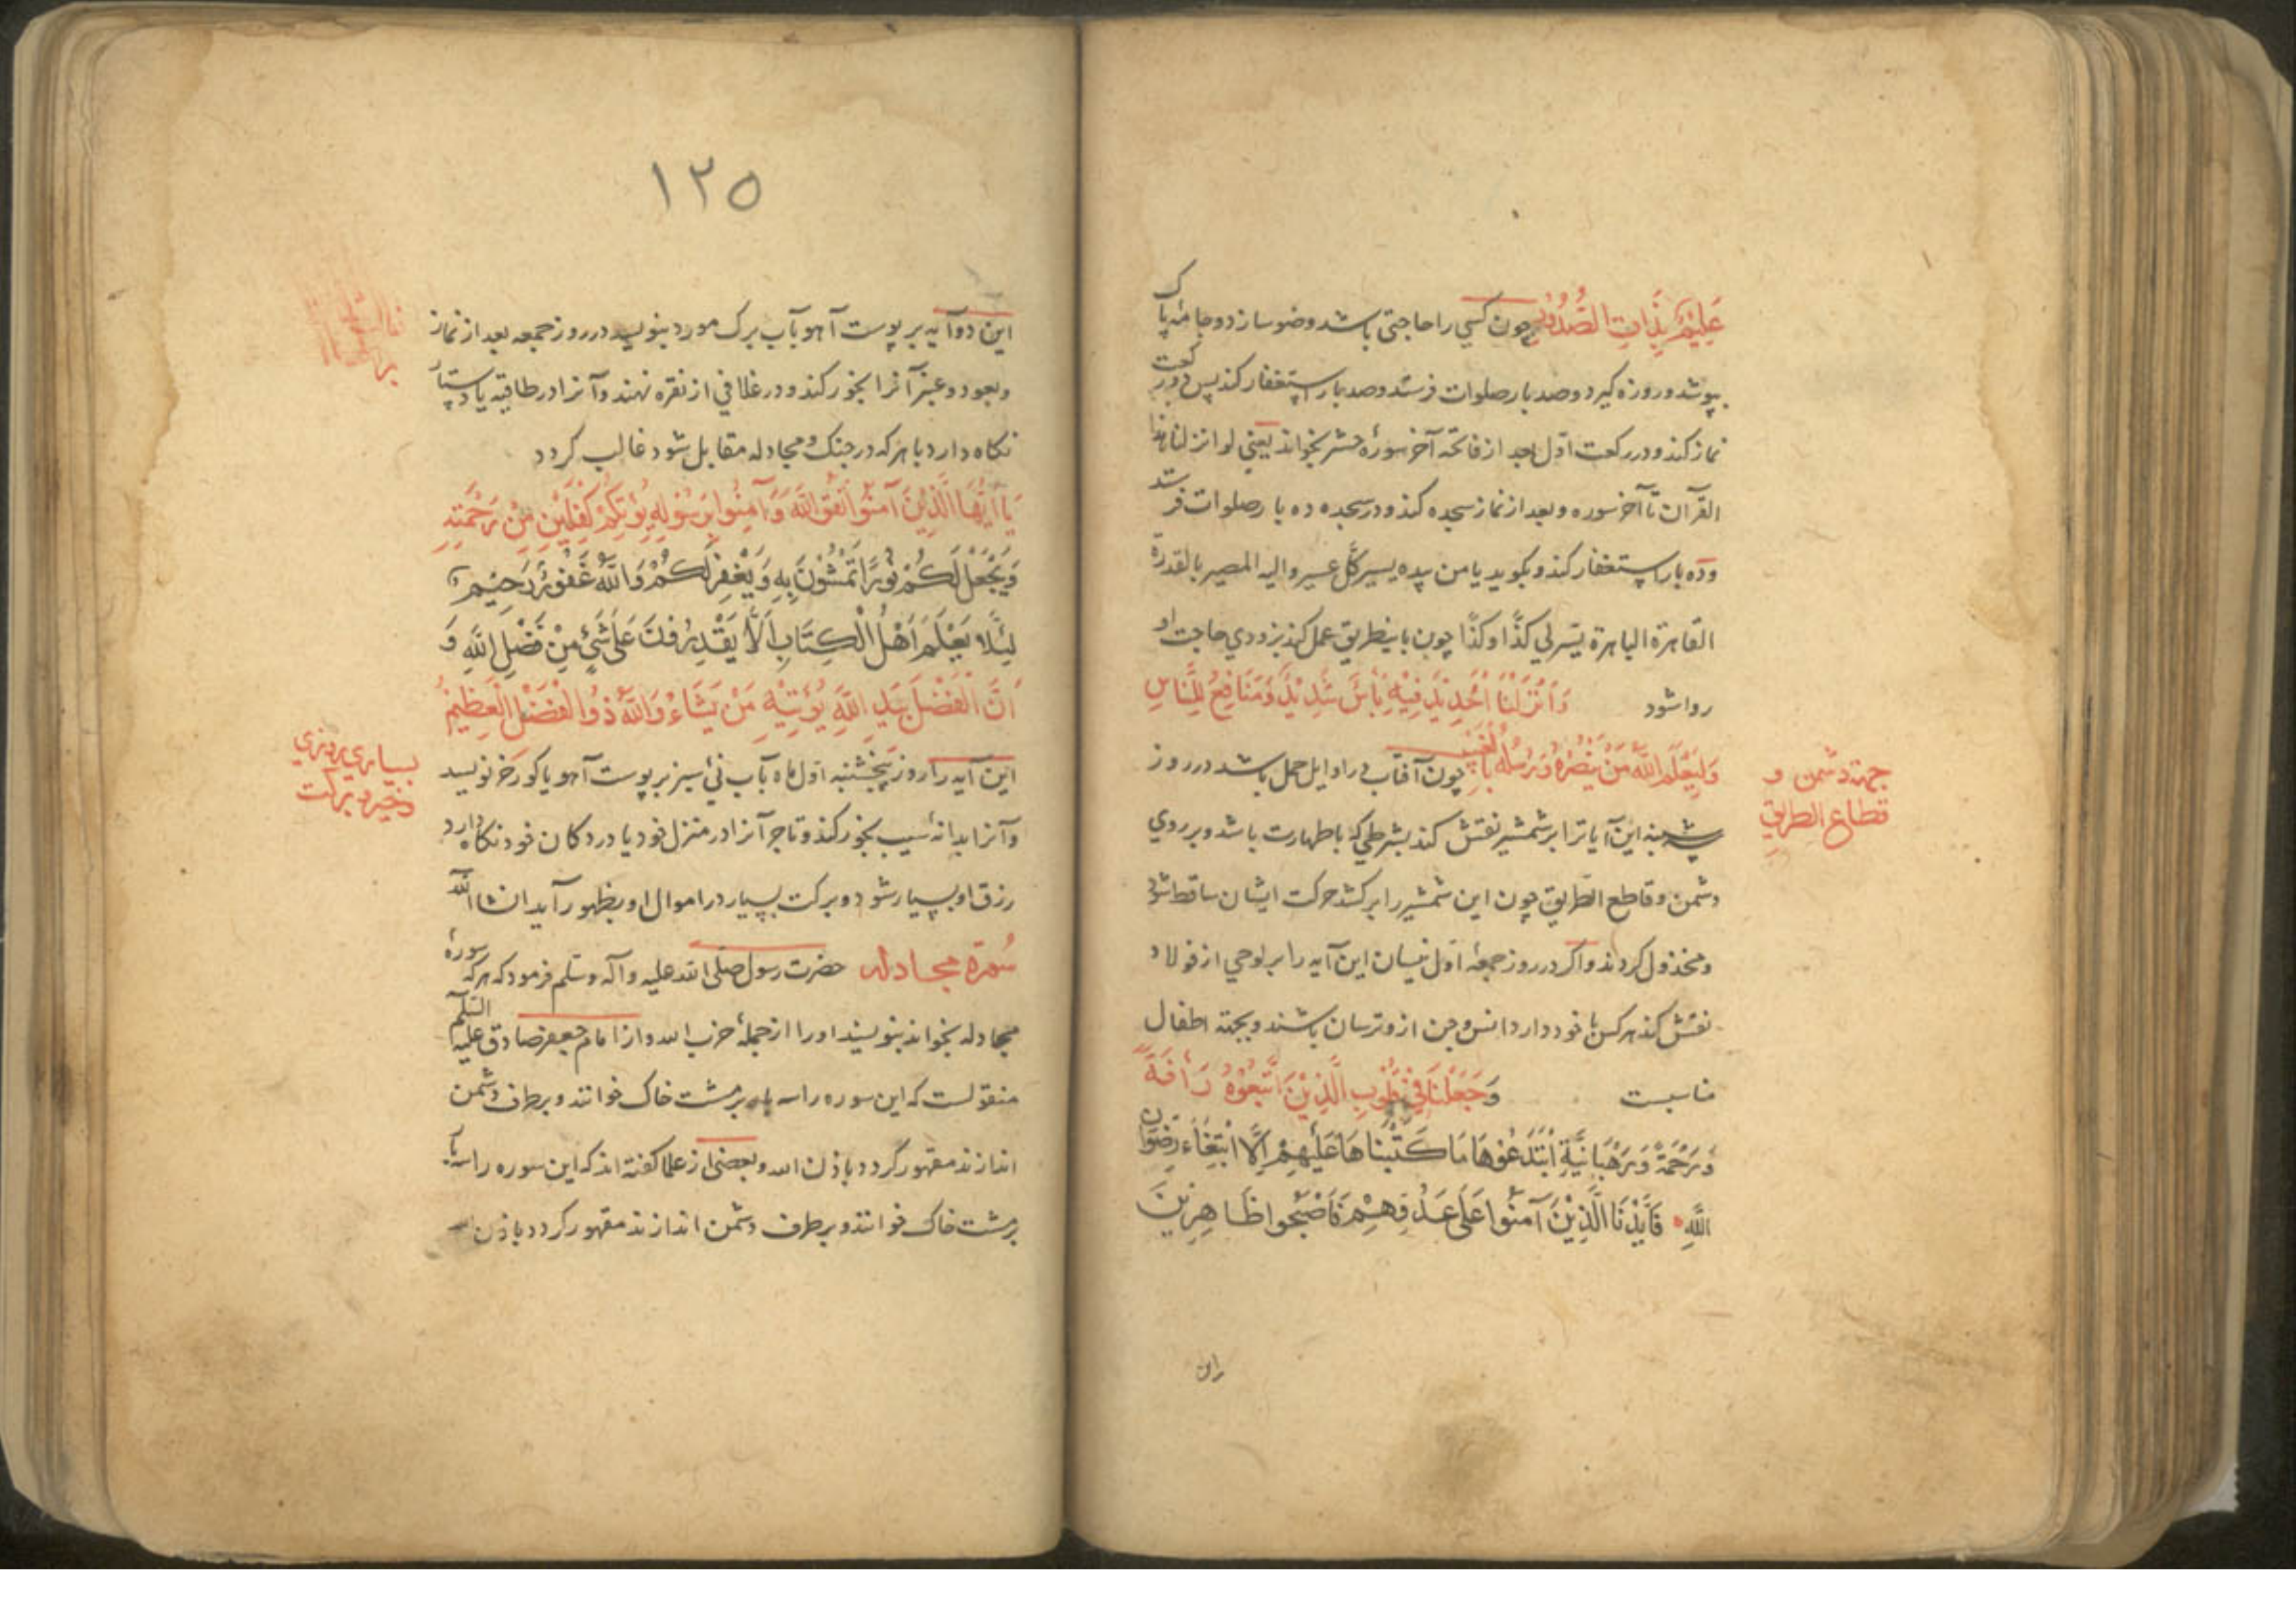 عَلِيْمٌ بِذَاتِ الصُّدُوْرِ چون كسي را حاجتي باشد وضو سازد و جامهٔ پاك
بپوشد و روزه كيرد و صد بار صلوات فرستد و صد بار استغفار كند پس دو ركعت
نماز كند و در ركعت اوّل بعد از فاتحه آخر سورهٔ حشر بخواند يعني لو انزلنا هذا
القرآن تا آخر سوره و بعد از نماز سجده كند و در سجده ده بار صلوات فرستد
و ده بار استغفار كند و بكويد يا من بيده يسير كلّ عسير و اليه المصير بالقدرة
القاهرة الباهرة يسّر لي كذا و كذا چون باينطريق عمل كند بزودي حاجت او
روا شود وَ اَنْزَلْنَا الْحَدِيْدَ فِيْهِ بَأْسٌ شَدِيْدٌ وَ مَنَافِعُ لِلنَّاسِ
وَ لِيَعْلَمَ اللّٰهُ مَنْ يَنْصُرُهُ وَ رُسُلَهُ بِالْغَيْبِ چون آفتاب در اوايل حمل باشد در روز
جهة دشمن و
قطاع الطريق
شنبه اين آيات را بر شمشير نقش كند بشرطي كه با طهارت باشد و بر روي
دشمن و قاطع الطريق چون اين شمشير را بر كشد حركت ايشان ساقط شود
و مخذول كردند و اكر در روز جمعهٔ اوّل نيسان اين آيه را بر لوحي از فولاد
نقش كند هر كس با خود دارد انس و جن ازو ترسان باشند و بجهة اطفال
مناسبست وَ جَعَلْنَا فِيْ قُلُوْبِ الَّذِيْنَ اتَّبَعُوْهُ رَأْفَةً
وَ رَحْمَةً وَ رَهْبَانِيَّةً ابْتَدَعُوْهَا مَا كَتَبْنَاهَا عَلَيْهِمْ اِلَّا ابْتِغَاءَ رِضْوَانِ
اللّٰهِ فَاَيَّدْنَا الَّذِيْنَ آمَنُوا عَلٰى عَدُوِّهِمْ فَاَصْبَحُوا ظَاهِرِيْنَ
اين
۱۲۵
اين دو آيه بر پوست آهو بآب برك مورد بنويسد در روز جمعه بعد از نماز
و بعود و عنبر آنرا بخور كند و در غلافي از نقره نهند و آنرا در طاقيه يا دستار
نكاه دارد با هر كه در جنك و مجادله مقابل شود غالب كردد
يَا اَيُّهَا الَّذِيْنَ آمَنُوا اتَّقُوا اللّٰهَ وَ آمِنُوا بِرَسُوْلِهِ يُؤْتِكُمْ كِفْلَيْنِ مِنْ رَحْمَتِهِ
وَ يَجْعَلْ لَكُمْ نُوْرًا تَمْشُوْنَ بِهِ وَ يَغْفِرْ لَكُمْ وَ اللّٰهُ غَفُوْرٌ رَحِيْمٌ
لِئَلَّا يَعْلَمَ اَهْلُ الْكِتَابِ اَلَّا يَقْدِرُوْنَ عَلٰى شَيْءٍ مِنْ فَضْلِ اللّٰهِ وَ
اَنَّ الْفَضْلَ بِيَدِ اللّٰهِ يُؤْتِيْهِ مَنْ يَشَاءُ وَ اللّٰهُ ذُو الْفَضْلِ الْعَظِيْمِ
بسياري روزي
و خير و بركت
اين آيه را روز پنجشنبه اوّل ماه بآب نئ سبز بر پوست آهو يا كورخر نويسد
و آنرا بدانهٔ سيب بخور كند و تاجر آنرا در منزل خود يا در دكان خود نكاه دارد
رزق او بسيار شود و بركت بسيار در اموال او بظهور آيد ان شا الله
سُورة مجادله حضرت رسول صلى الله عليه و آله و سلم فرمود كه هر كه سورهٔ
مجادله بخواند بنويسند او را از جملهٔ حزب الله و از امام جعفر صادق عليه السلم
منقولست كه اين سوره را سه بار بر مشت خاك خوانند و بر طرف دشمن
اندازند مقهور كردد باذن الله و بعضي از علما كفته اند كه اين سوره را سه بار
بر مشت خاك خوانند و بر طرف دشمن اندازند مقهور كردد باذن الله